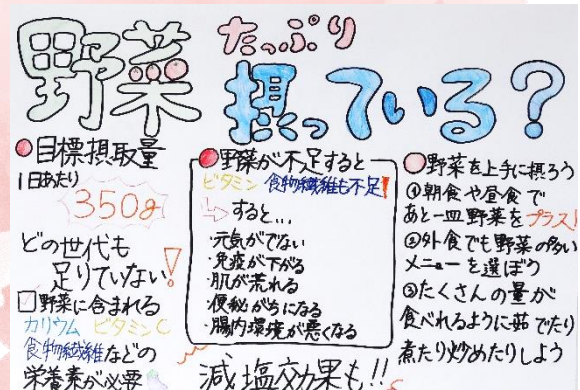 野菜たっぷり
摂っている?
●目標摂取量
1日あたり
350g
どの世代も
足りていない!
☑野菜に含まれる
カリウム ビタミンC
食物繊維などの
栄養素が必要
●野菜が不足すると
ビタミン 食物繊維も不足!
すると…
・元気がでない
・免疫が下がる
・肌が荒れる
・便秘がちになる
・腸内環境が悪くなる
減塩効果も!!
○野菜を上手に摂ろう
①朝食や昼食で
あと一皿野菜をプラス!
②外食でも野菜の多い
メニューを選ぼう
③たくさんの量が
食べれるように茹でたり
煮たり炒めたりしよう